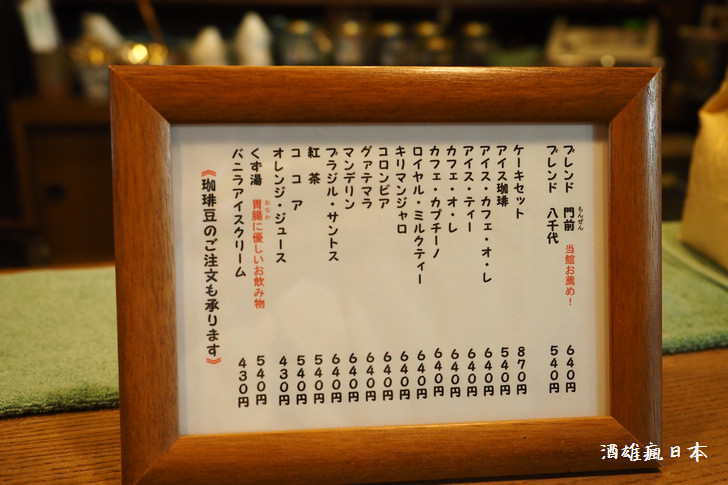 ブレンド 門前 もんぜん 当館お薦め! 640円
ブレンド 八千代 540円
ケーキセット 870円
アイス珈琲 540円
アイス・カフェ・オ・レ 640円
アイス・ティー 640円
カフェ・オ・レ 640円
カフェ・カプチーノ 640円
ロイヤル・ミルクティー 640円
キリマンジャロ 640円
コロンビア 640円
グァテマラ 640円
マンデリン 640円
ブラジル・サントス 640円
紅茶 540円
ココア 540円
オレンジ・ジュース 430円
くず湯 胃腸 おなか に優しいお飲み物 540円
バニラアイスクリーム 430円
《珈琲豆のご注文も承ります》
酒雄瘋日本